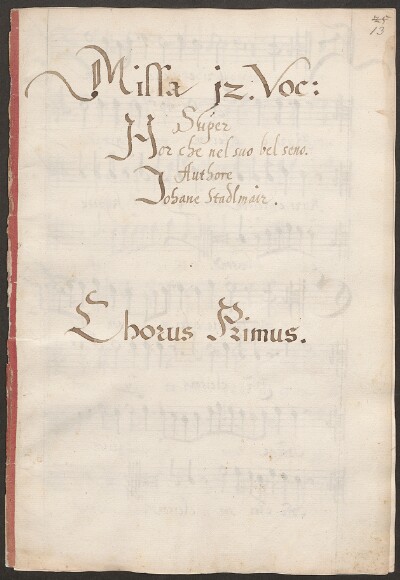 25
13
Missa jz. Voc:
Super
Hor che nel suo bel seno.
Authore
Johane Stadlmair.
Chorus Primus.